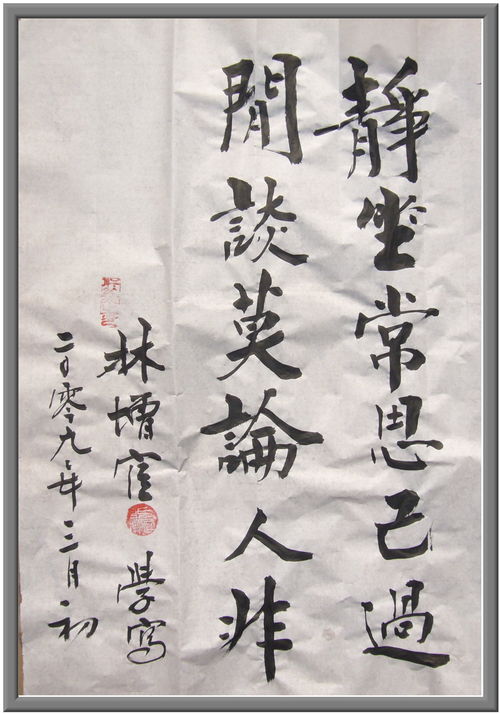 靜坐常思己過
閒談莫論人非
林增官 學寫
二〇零九年三月初